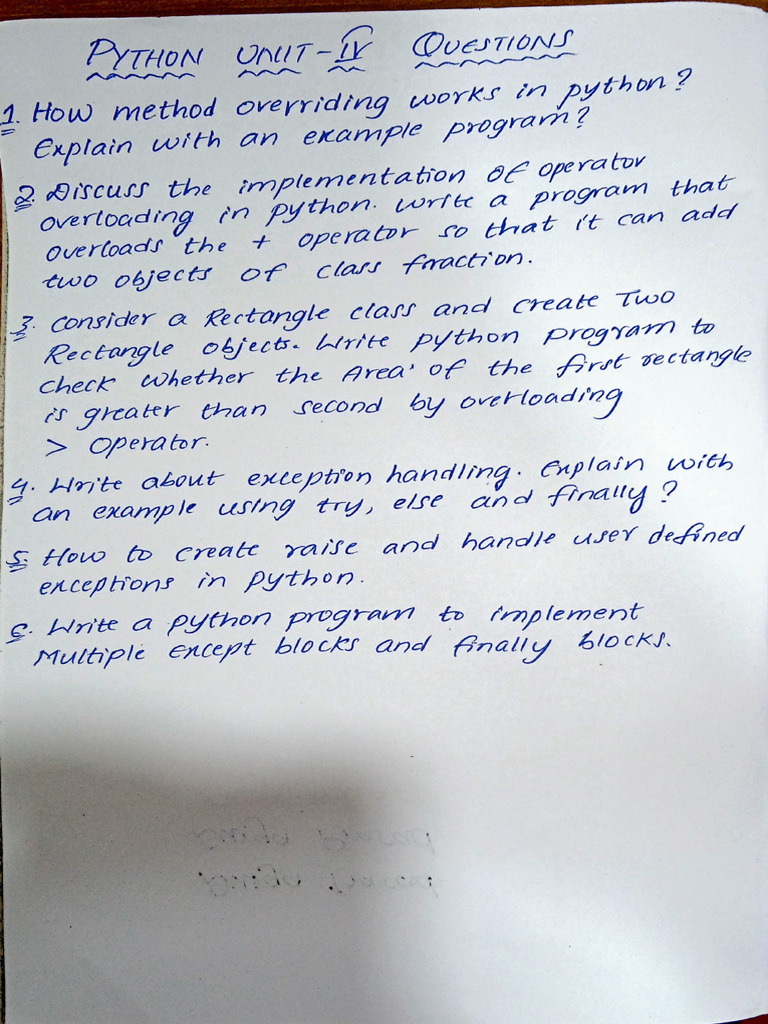 PYTHON UNIT-IV QUESTIONS
1. How method overriding works in python?
Explain with an example program?
2. Discuss the implementation of operator
overloading in python. Write a program that
overloads the + operator so that it can add
two objects of class fraction.
3. Consider a Rectangle class and create Two
Rectangle objects. Write python program to
check whether the Area of the first rectangle
is greater than second by overloading
> operator.
4. Write about exception handling. Explain with
an example using try, else and finally?
5. How to create raise and handle user defined
exceptions in python.
6. Write a python program to implement
Multiple Except blocks and finally blocks.